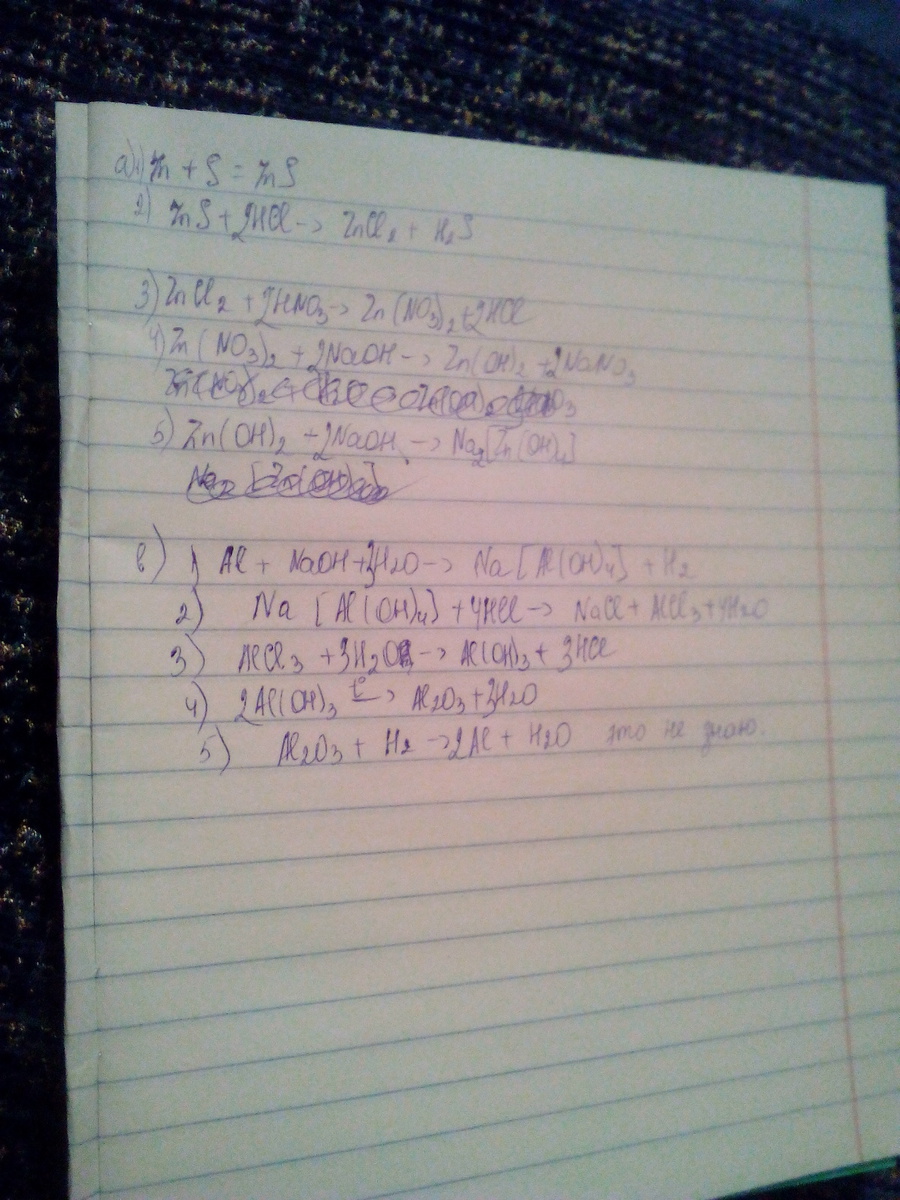 а) 1) Zn + S = ZnS
2) ZnS + 2HCl -> ZnCl₂ + H₂S
3) ZnCl₂ + 2HNO₃ -> Zn(NO₃)₂ + 2HCl
4) Zn(NO₃)₂ + 2NaOH -> Zn(OH)₂ + 2NaNO₃
5) Zn(OH)₂ + 2NaOH -> Na₂[Zn(OH)₄]
в) 1) Al + NaOH + 3H₂O -> Na[Al(OH)₄] + H₂
2) Na[Al(OH)₄] + 4HCl -> NaCl + AlCl₃ + 4H₂O
3) AlCl₃ + 3H₂O -> Al(OH)₃ + 3HCl
4) 2Al(OH)₃ t° -> Al₂O₃ + 3H₂O
5) Al₂O₃ + H₂ -> 2Al + H₂O это не знаю.